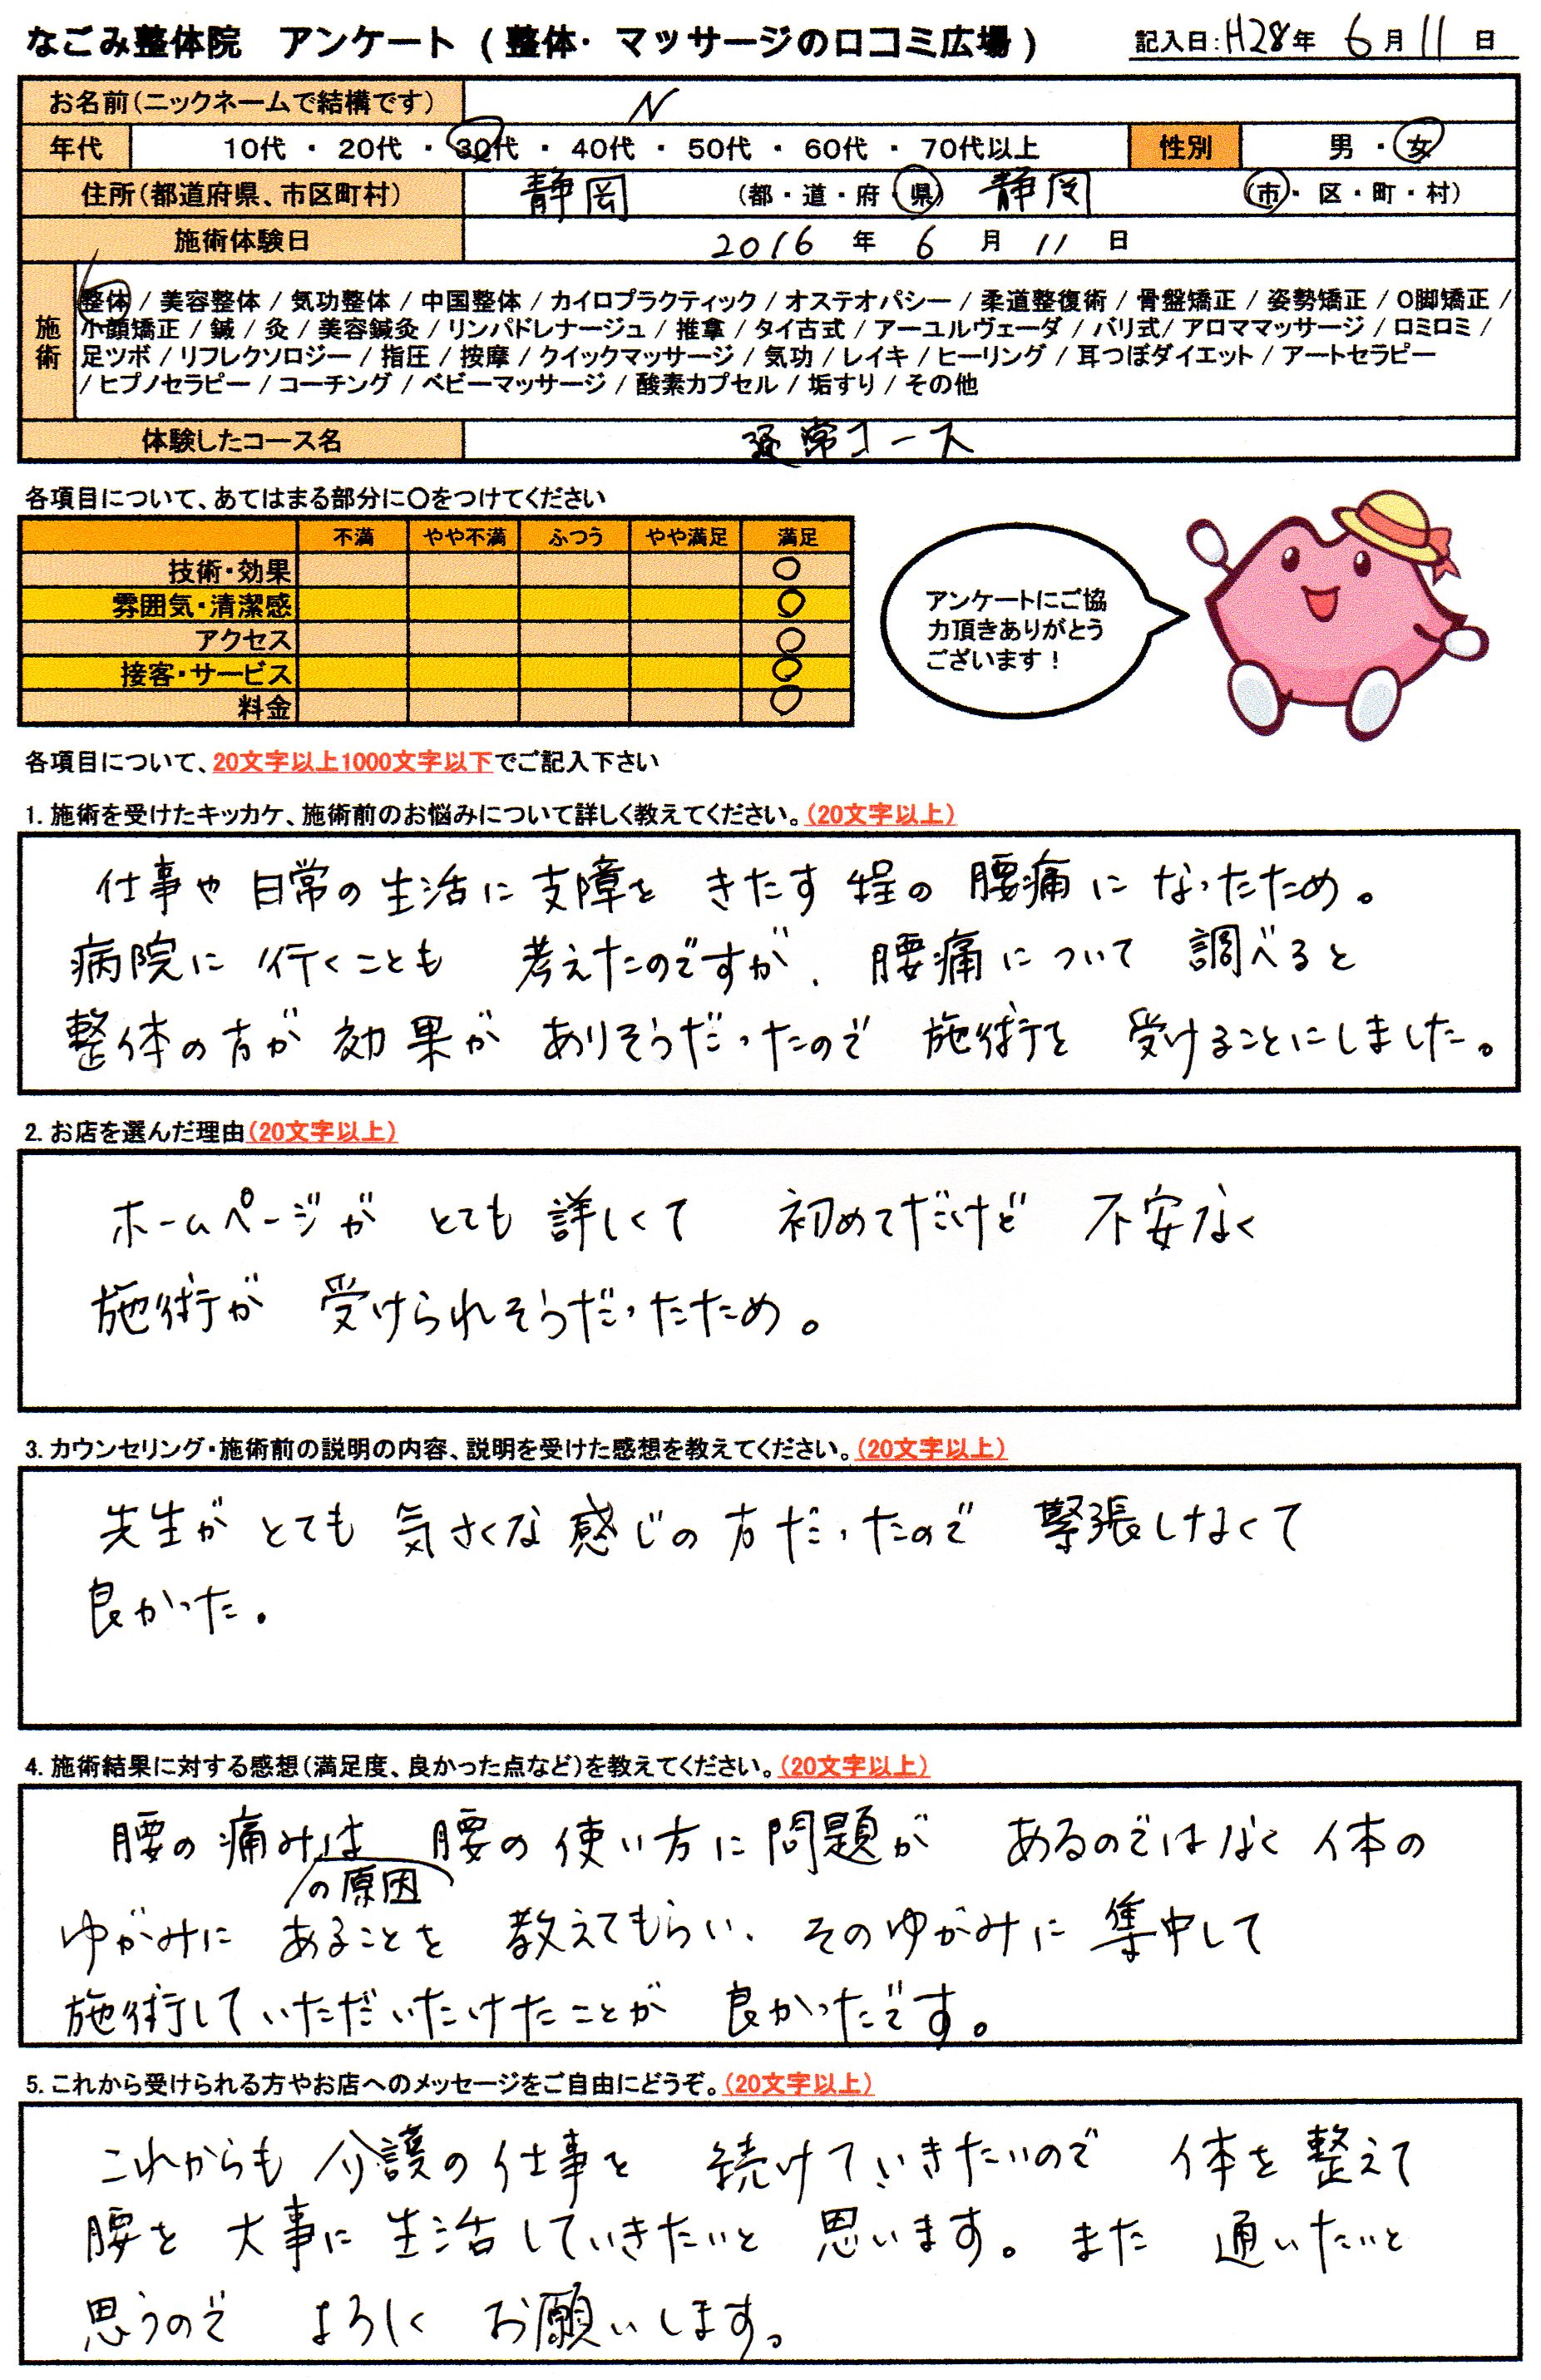 なごみ整体院 アンケート (整体・マッサージの口コミ広場) 記入日:H28年 6月11日
お名前(ニックネームで結構です) N
年代 10代 ・ 20代 ・ 30代 ・ 40代 ・ 50代 ・ 60代 ・ 70代以上 性別 男 ・ 女
住所(都道府県、市区町村) 静岡 (都・道・府・県) 静岡 (市・区・町・村)
施術体験日 2016 年 6 月 11 日
施術
整体 / 美容整体 / 気功整体 / 中国整体 / カイロプラクティック / オステオパシー / 柔道整復術 / 骨盤矯正 / 姿勢矯正 / O脚矯正 /
小顔矯正 / 鍼 / 灸 / 美容鍼灸 / リンパドレナージュ / 推拿 / タイ古式 / アーユルヴェーダ / バリ式/ アロママッサージ / ロミロミ /
足ツボ / リフレクソロジー / 指圧 / 按摩 / クイックマッサージ / 気功 / レイキ / ヒーリング / 耳つぼダイエット / アートセラピー
/ ヒプノセラピー / コーチング / ベビーマッサージ / 酸素カプセル / 垢すり / その他
体験したコース名 通常コース
各項目について、あてはまる部分に○をつけてください
不満 やや不満 ふつう やや満足 満足
技術・効果 ○
雰囲気・清潔感 ○
アクセス ○
接客・サービス ○
料金 ○
アンケートにご協
力頂きありがとう
ございます！
各項目について、20文字以上1000文字以下でご記入下さい
1. 施術を受けたキッカケ、施術前のお悩みについて詳しく教えてください。(20文字以上)
仕事や日常の生活に支障をきたす程の腰痛になったため。
病院に行くことも考えたのですが、腰痛について調べると
整体の方が効果がありそうだったので施術を受けることにしました。
2. お店を選んだ理由(20文字以上)
ホームページがとても詳しくて 初めてだけど 不安なく
施術が受けられそうだったため。
3. カウンセリング・施術前の説明の内容、説明を受けた感想を教えてください。(20文字以上)
先生がとても気さくな感じの方だったので 緊張しなくて
良かった。
4. 施術結果に対する感想(満足度、良かった点など)を教えてください。(20文字以上)
腰の痛みは 腰の使い方に問題が あるのではなく体の
の原因
ゆがみに あることを 教えてもらい、そのゆがみに集中して
施術していただいたけたことが 良かったです。
5. これから受けられる方やお店へのメッセージをご自由にどうぞ。(20文字以上)
これからも介護の仕事を 続けていきたいので 体を整えて
腰を大事に生活していきたいと思います。また 通いたいと
思うので よろしく お願いします。